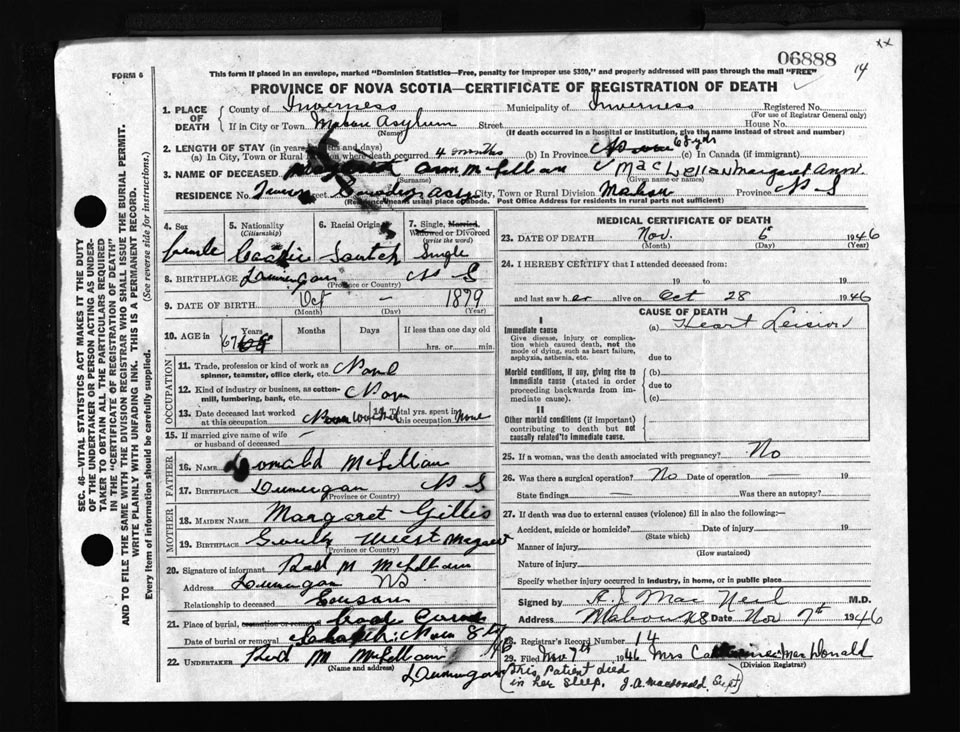 xx
06888
14
FORM 6
This form if placed in an envelope, marked "Dominion Statistics—Free, penalty for improper use $300," and properly addressed will pass through the mail "FREE"
PROVINCE OF NOVA SCOTIA—CERTIFICATE OF REGISTRATION OF DEATH
SEC. 46—VITAL STATISTICS ACT MAKES IT THE DUTY
OF THE UNDERTAKER OR PERSON ACTING AS UNDER-
TAKER TO OBTAIN ALL THE PARTICULARS REQUIRED
IN THE "CERTIFICATE OF REGISTRATION OF DEATH"
AND TO FILE THE SAME WITH THE DIVISION REGISTRAR WHO SHALL ISSUE THE BURIAL PERMIT.
WRITE PLAINLY WITH UNFADING INK. THIS IS A PERMANENT RECORD.
Every item of information should be carefully supplied. (See reverse side for instructions.)
1. PLACE OF DEATH
County of Inverness Municipality of Inverness Registered No.
(For use of Registrar General only)
If in City or Town Mabou Asylum Street House No.
(Name) (If death occurred in a hospital or institution, give the name instead of street and number)
2. LENGTH OF STAY (in years, months and days)
(a) In City, Town or Rural where death occurred 4 months (b) In Province 68 yrs (c) In Canada (if immigrant)
3. NAME OF DECEASED Ann McLellan MacLellan Margaret Ann
(Surname) (Given name or names)
RESIDENCE No. Street City, Town or Rural Division Mabou Province N S
(Residence means usual place of abode. Post Office Address for residents in rural parts not sufficient)
4. Sex female
5. Nationality (Citizenship)
6. Racial Origin Scotch
7. Single, Married, Widowed or Divorced (write the word) Single
8. BIRTHPLACE Dunvegan N S
(Province or Country)
9. DATE OF BIRTH Oct — 1879
(Month) (Day) (Year)
10. AGE in Years 67 Months Days If less than one day
hrs. or min.
OCCUPATION
11. Trade, profession or kind of work as spinner, teamster, office clerk, etc. None
12. Kind of industry or business, as cotton-mill, lumbering, bank, etc. None
13. Date deceased last worked at this occupation 14. Total yrs. spent in this occupation None
15. If married give name of wife or husband of deceased —
FATHER
16. NAME Donald McLellan
17. BIRTHPLACE Dunvegan N S
(Province or Country)
MOTHER
18. MAIDEN NAME Margaret Gillis
19. BIRTHPLACE South West Margaree
(Province or Country)
20. Signature of informant Rod M McLellan
Address Dunvegan NS.
Relationship to deceased Cousin
21. Place of burial, cremation or removal
Date of burial or removal Nov 8th
22. UNDERTAKER Rod M McLellan
(Name and address)
Dunvegan
MEDICAL CERTIFICATE OF DEATH
23. DATE OF DEATH Nov. 6 1946
(Month) (Day) (Year)
24. I HEREBY CERTIFY that I attended deceased from:
19 to 19
and last saw her alive on Oct 28 1946
CAUSE OF DEATH
I
Immediate cause (a) Heart Leision
Give disease, injury or complication which caused death, not the mode of dying, such as heart failure, asphyxia, asthenia, etc. due to
Morbid conditions, if any, giving rise to immediate cause (stated in order proceeding backwards from immediate cause). (b) due to (c)
II
Other morbid conditions (if important) contributing to death but not causally related to immediate cause.
25. If a woman, was the death associated with pregnancy? No
26. Was there a surgical operation? No Date of operation 19
State findings — Was there an autopsy?
27. If death was due to external causes (violence) fill in also the following:—
Accident, suicide or homicide? Date of injury 19
(State which)
Manner of injury
(How sustained)
Nature of injury
Specify whether injury occurred in industry, in home, or in public place
Signed by A. J MacNeil M.D.
Address Mabou NS Date Nov 7th 1946
28. Registrar's Record Number 14
29. Filed Nov 7th 1946 Mrs MacDonald
(Division Registrar)
(This Patient died
in her sleep. J.A. MacDonald Supt)